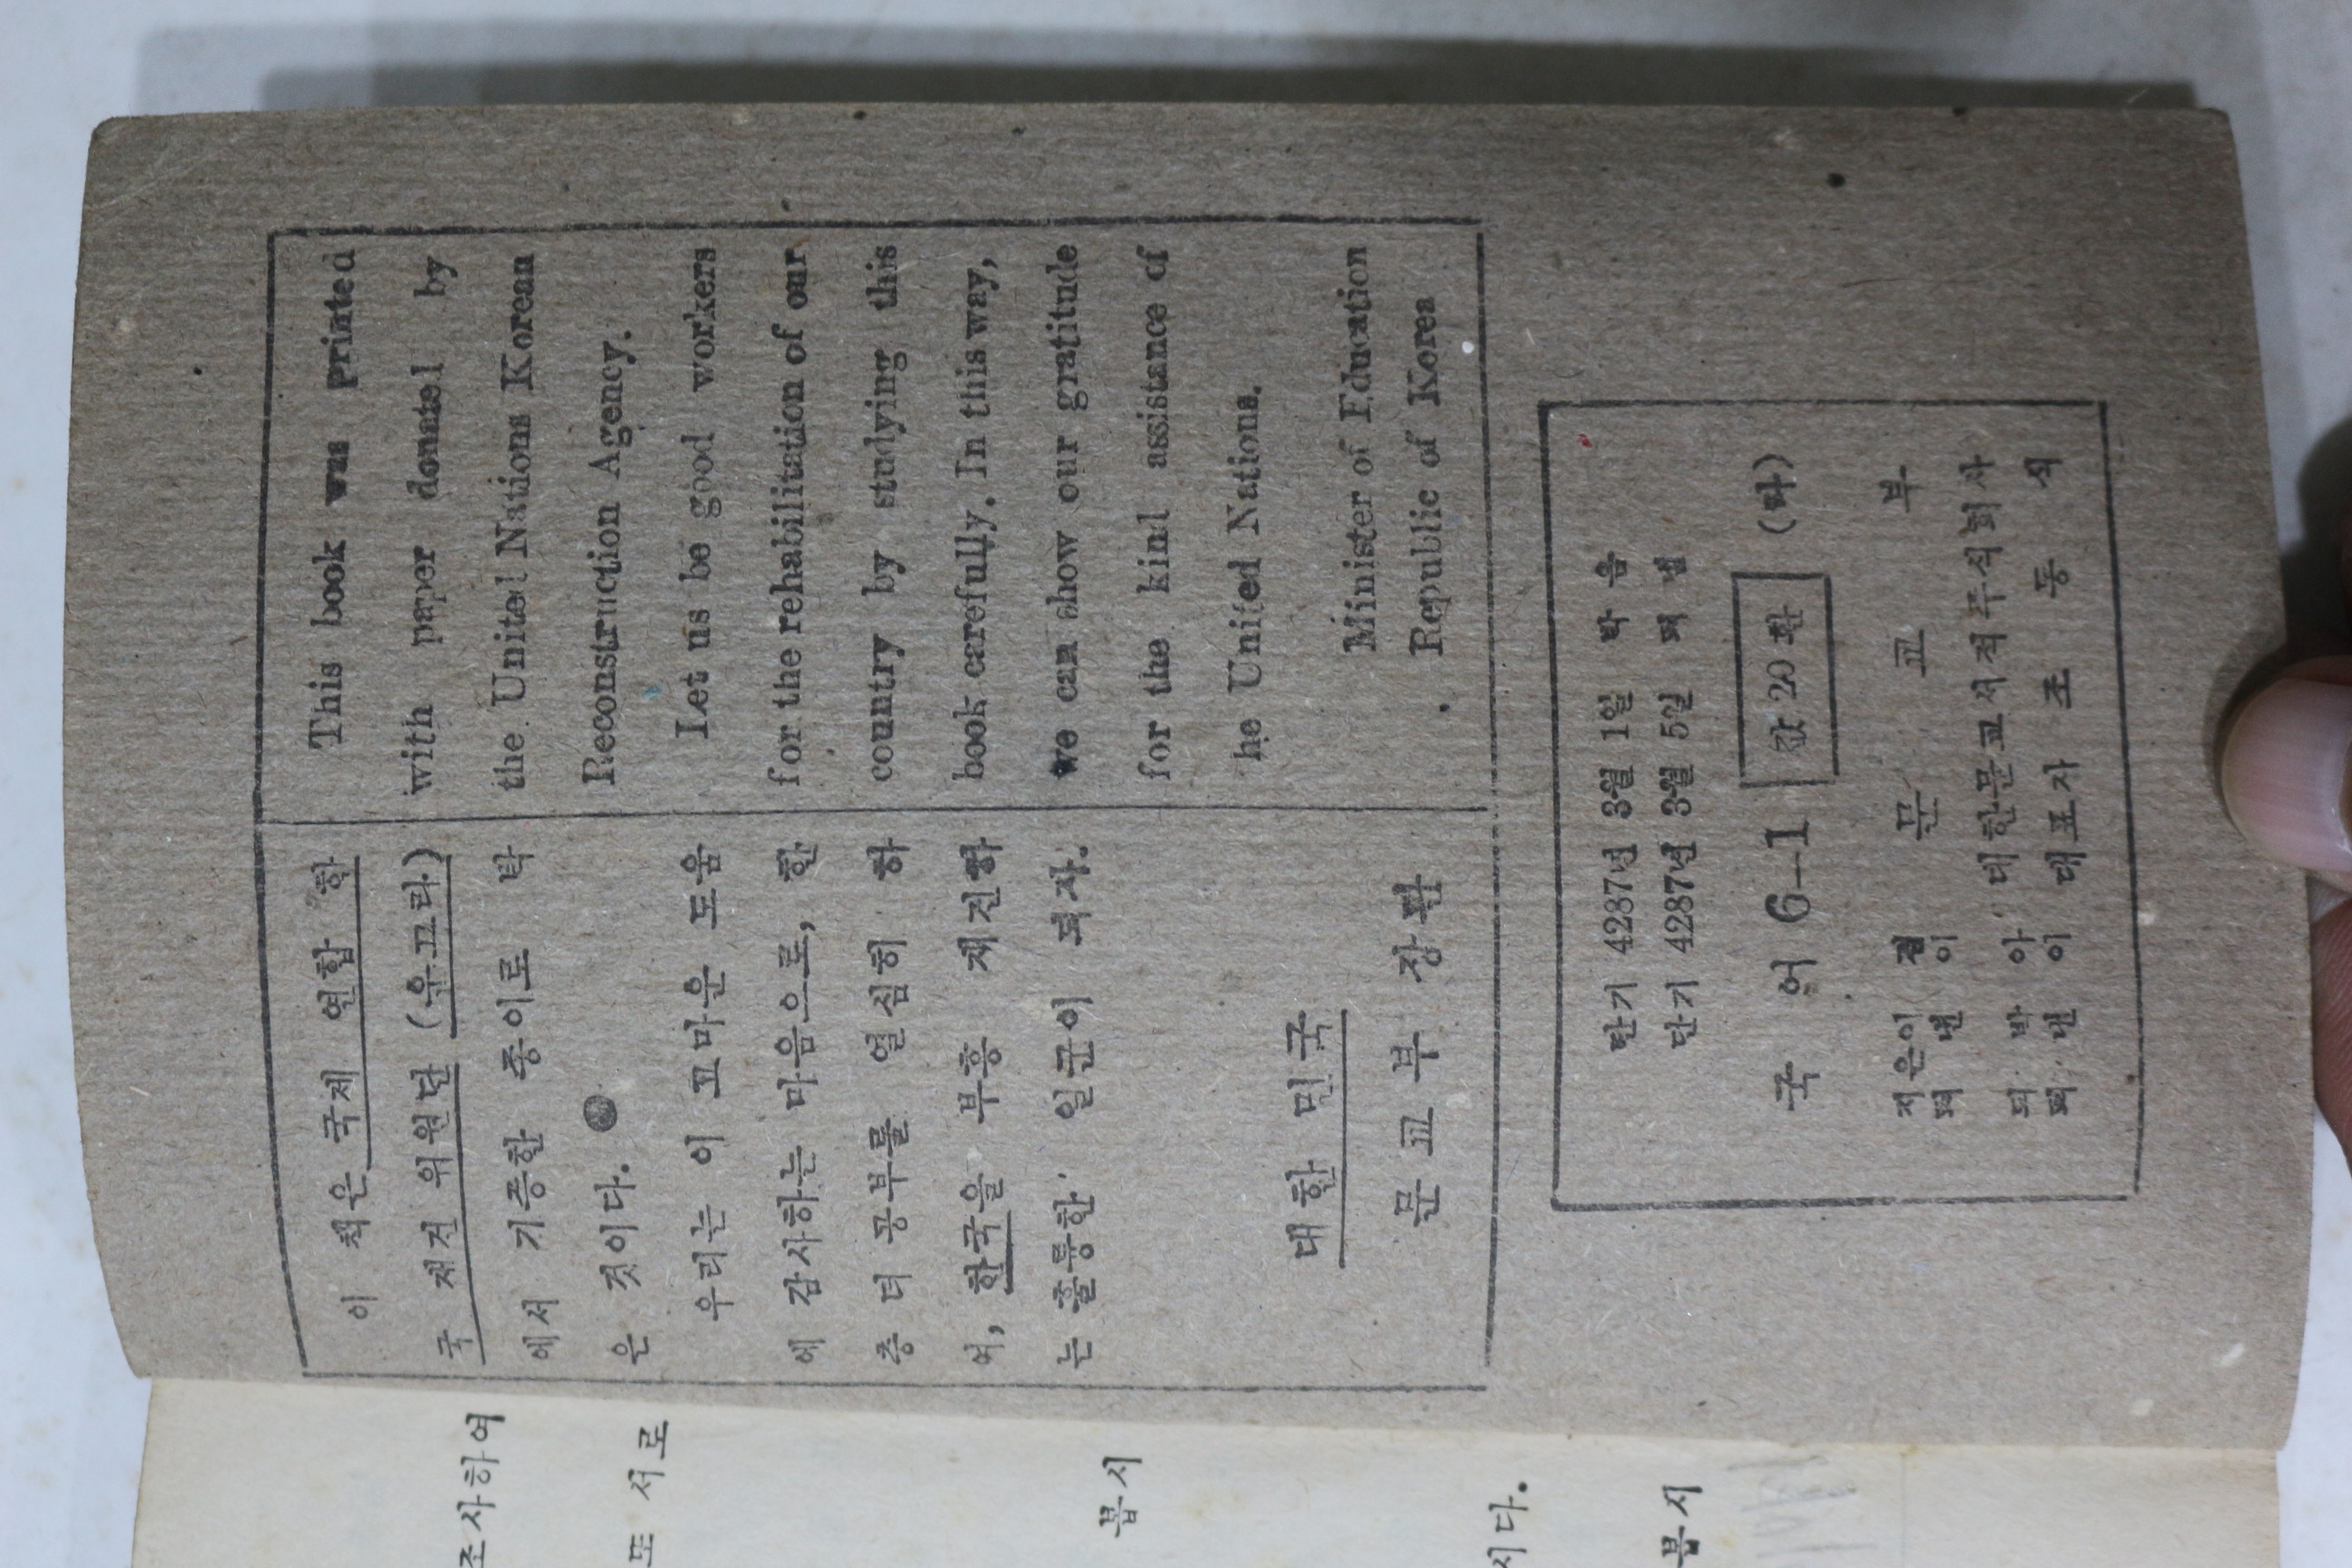 이 책은 국제 연합 한
국 재건 위원단 (운끄라)
에서 기증한 종이로 박
은 것이다.
우리는 이 고마운 도움
에 감사하는 마음으로, 한
층 더 공부를 열심히 하
여, 한국을 부흥 재건하
는 훌륭한 일군이 되자.
대한 민국
문교부 장관
This book was printed
with paper donated by
the United Nations Korean
Reconstruction Agency.
Let us be good workers
for the rehabilitation of our
country by studying this
book carefully. In this way,
we can show our gratitude
for the kind assistance of
he United Nations.
Minister of Education
Republic of Korea
단기 4287년 3월 1일 박음
단기 4287년 3월 5일 펴냄
국 어 6—1 값 20 환
지은이 겸
펴낸이 문 교 부
되박아 대한문교서적주식회사
펴낸이 대표자 조 동 식
조사하여
또 서로
봅시
시다.
봅시